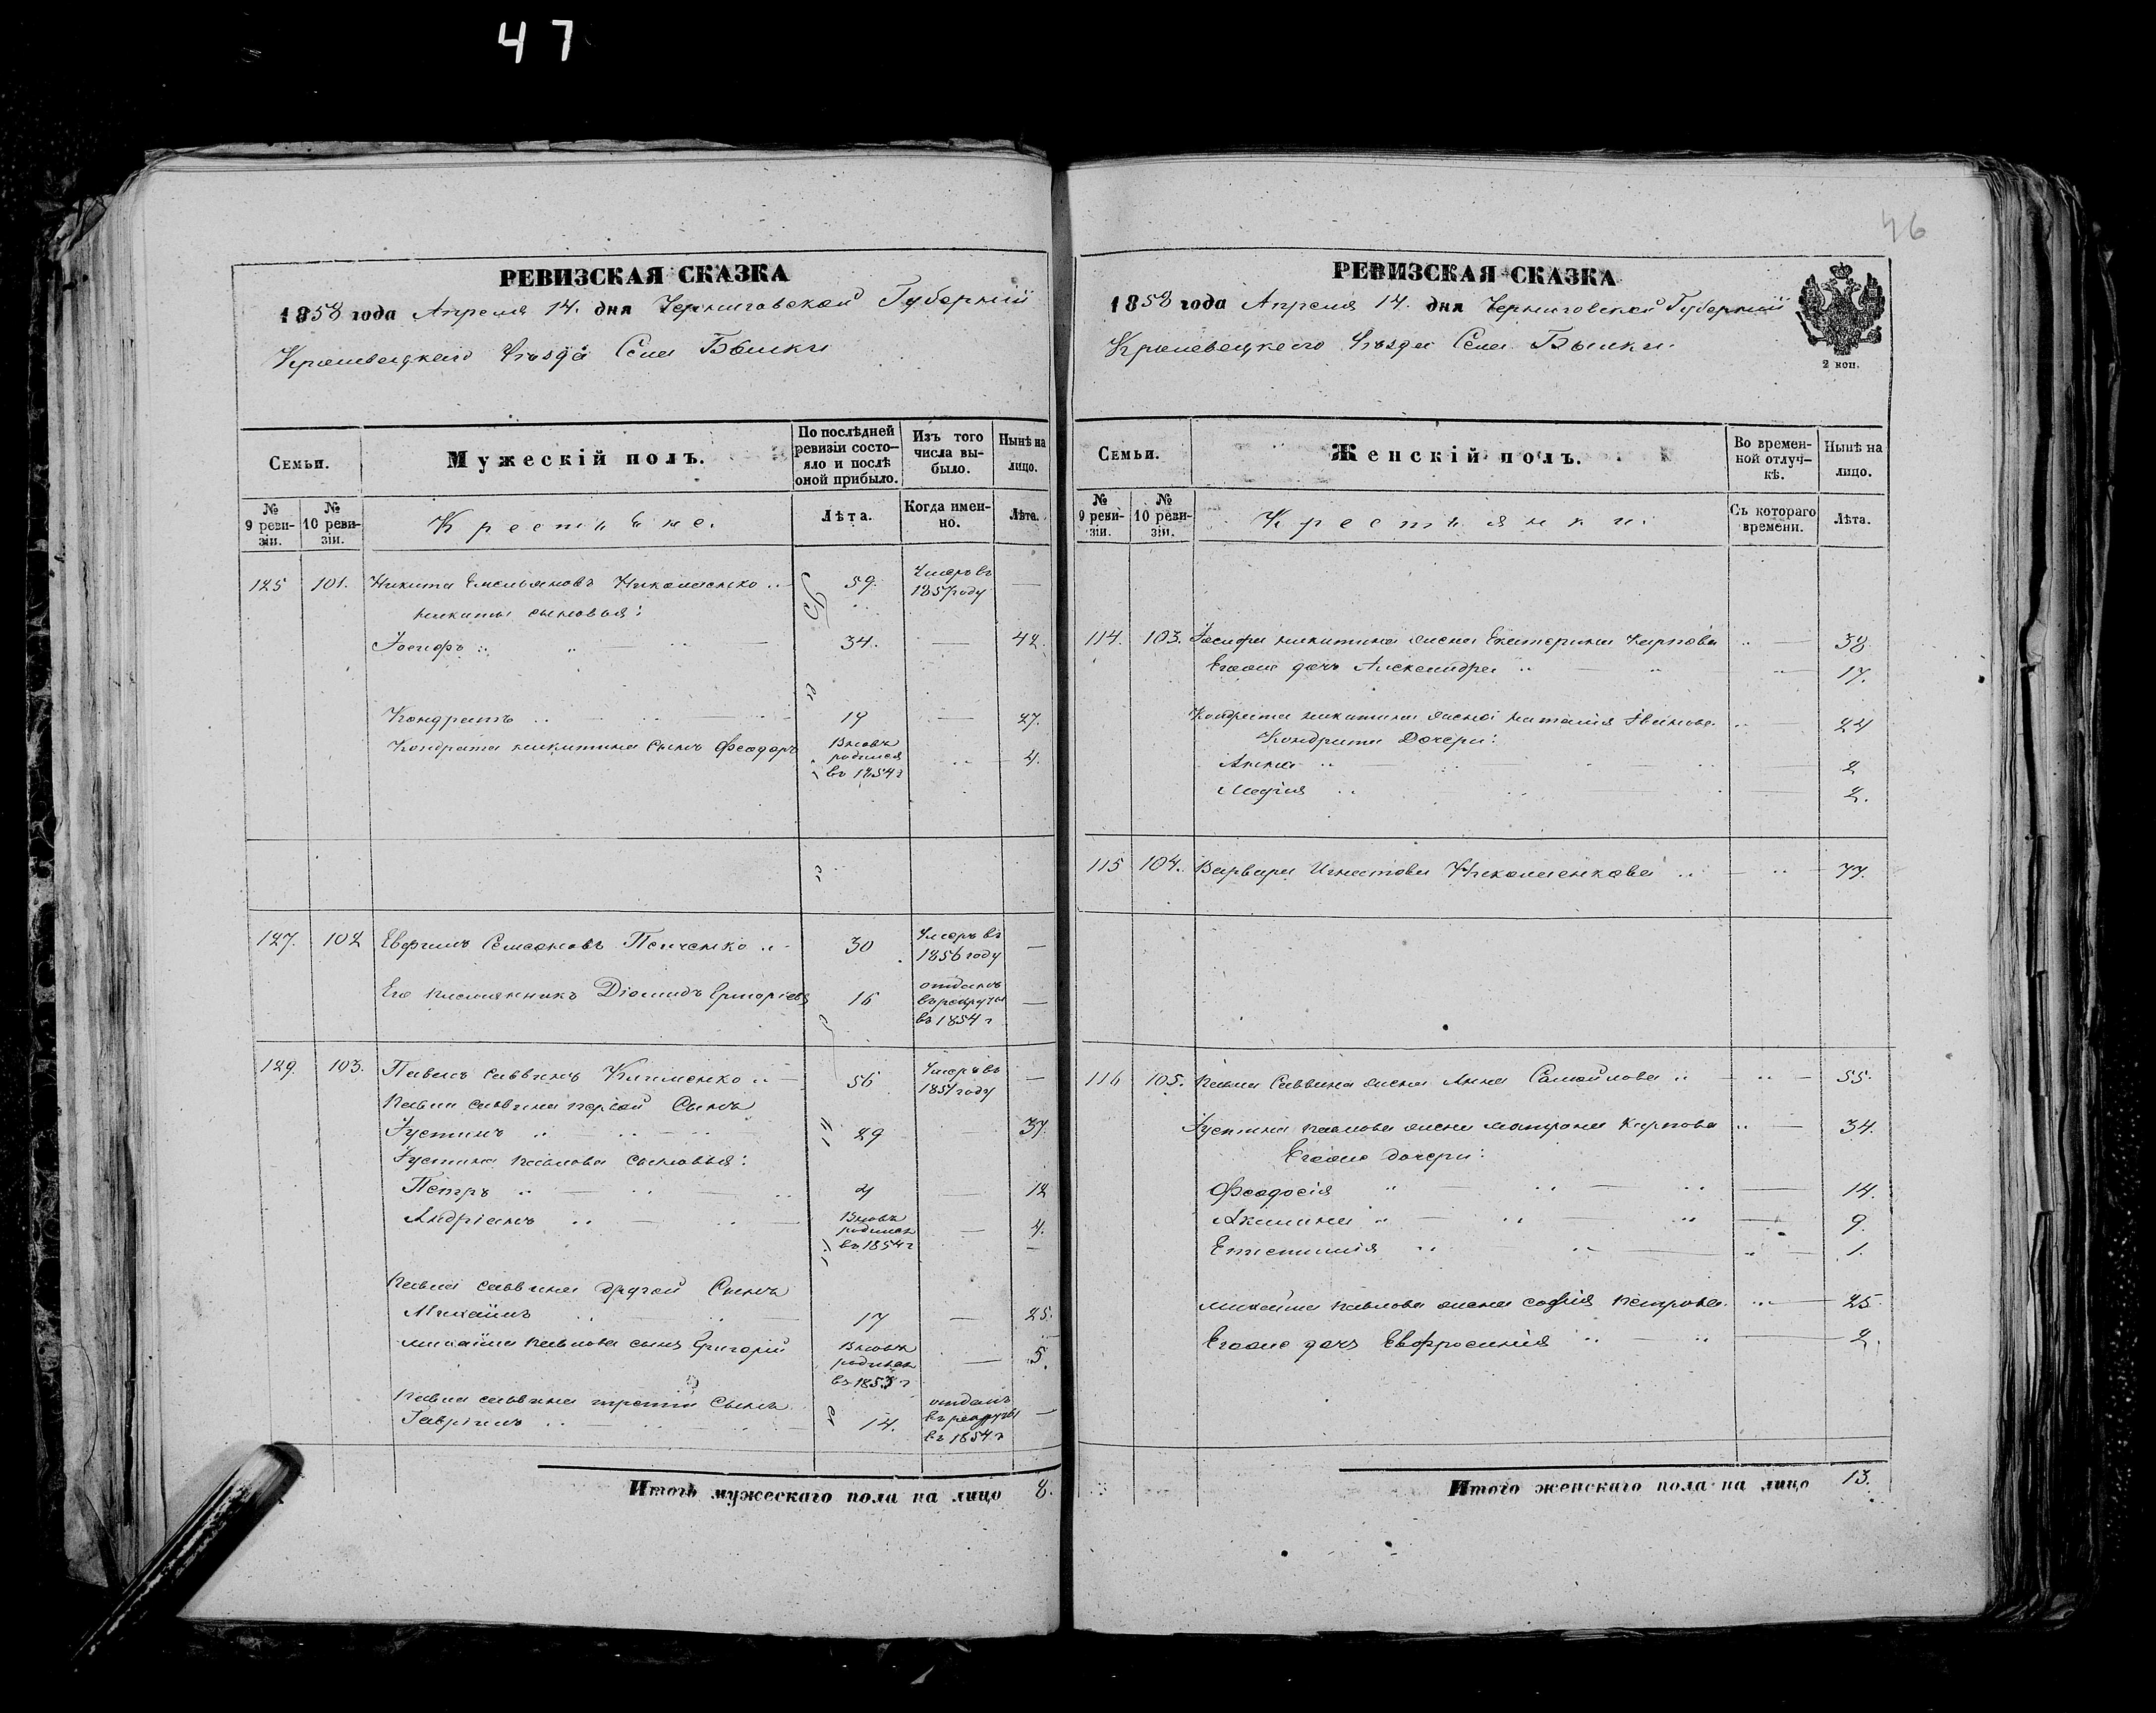 47
46
РЕВИЗСКАЯ СКАЗКА
1858 года Апреля 14. дня Черниговской Губернiи
Кролевецкаго Уѣзда Села Быки
Семьи.
Мужескій полъ.
По послѣдней ревизіи состояло и послѣ оной прибыло.
Изъ того числа выбыло.
Нынѣ на лицо.
№ 9 ревизіи.
№ 10 ревизіи.
Крестьяне.
Лѣта.
Когда именно.
Лѣта.
125 101. Никита Емельяновъ Николаенко 59. Умеръ въ 1857 году —
Никиты сыновья:
Іосифъ 34. — 42.
Кондратъ 19 — 27.
Кондрата Никитина сынъ Феодоръ Вновь родился въ 1854 г 4.
127. 102 Евфимъ Семеновъ 30 Умеръ въ 1856 году —
Его племянникъ Діомидъ Григоріевъ 16 отданъ въ рекруты въ 1854 г —
129. 103. Павелъ Саввинъ Клименко 56 Умеръ въ 1857 году —
Павла Саввина первой Сынъ
Іустинъ 29 37.
Іустина Павлова сыновья:
Петръ 4 — 12
Андріанъ Вновь родился въ 1854 г — 4.
Павла Саввина другой Сынъ
Михаилъ 17 — 25.
Михаила Павлова сынъ Григорій Вновь родился въ 1853 г — 5.
Павла Саввина третій Сынъ
Гавріилъ 14. отданъ въ рекруты въ 1854 г —
Итого мужескаго пола на лицо 8.
РЕВИЗСКАЯ СКАЗКА
1858 года Апреля 14. дня Черниговской Губернiи
Кролевецкаго Уѣзда Села Быки
2 коп.
Семьи.
Женскій полъ.
Во временной отлучкѣ.
Нынѣ на лицо.
№ 9 ревизіи.
№ 10 ревизіи.
Крестьянки.
Съ котораго времени.
Лѣта.
114. 103. Іосифа Никитина жена Екатерина Карпова — 38
Егоже дочь Александра 17.
Кондрата Никитина жена Наталія Иванова 24
Кондрата Дочери:
Анна 2
Марія 2.
115 104. Варвара Игнатова Николаенкова 77.
116 105. Павла Саввина жена Анна Самойлова 55.
Іустина Павлова жена Матрона Карпова 34.
Егоже дочери:
Феодосія 14.
Акилина 9.
Епистимія 1.
Михаила Павлова жена Софія Петрова 25.
Егоже дочь Евфросинія 2.
Итого женскаго пола на лицо 13.